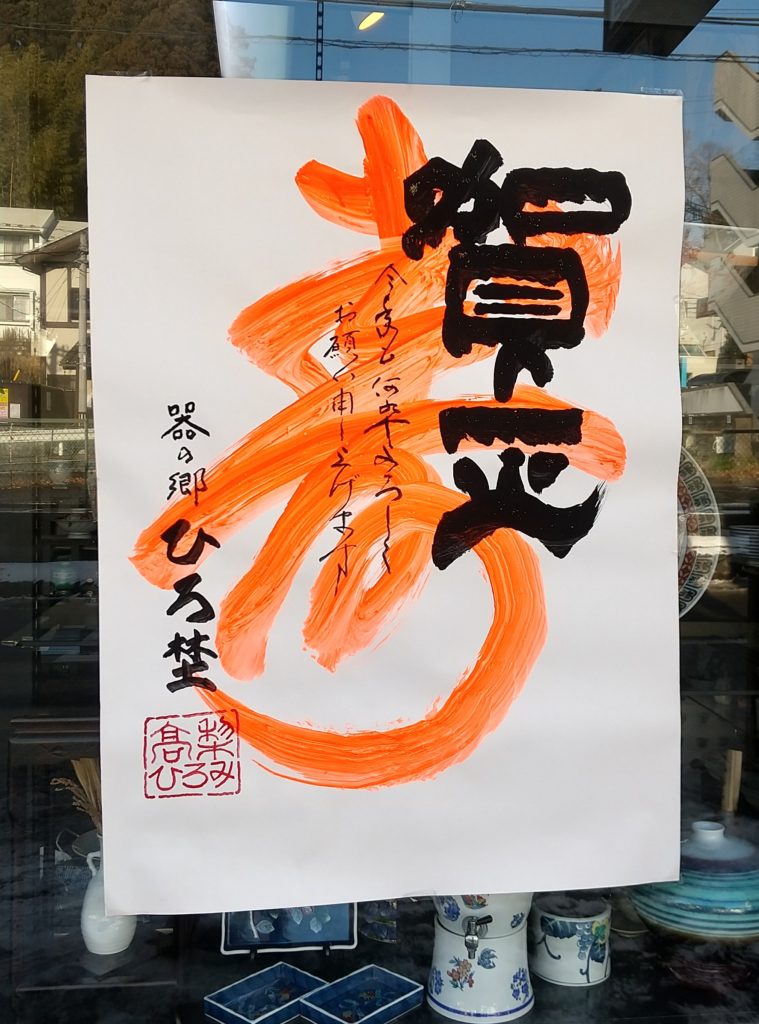 賀正
寿
今年も何卒よろしく
お願い申し上げます
器の郷 ひろ埜
髙梨
ひろみ